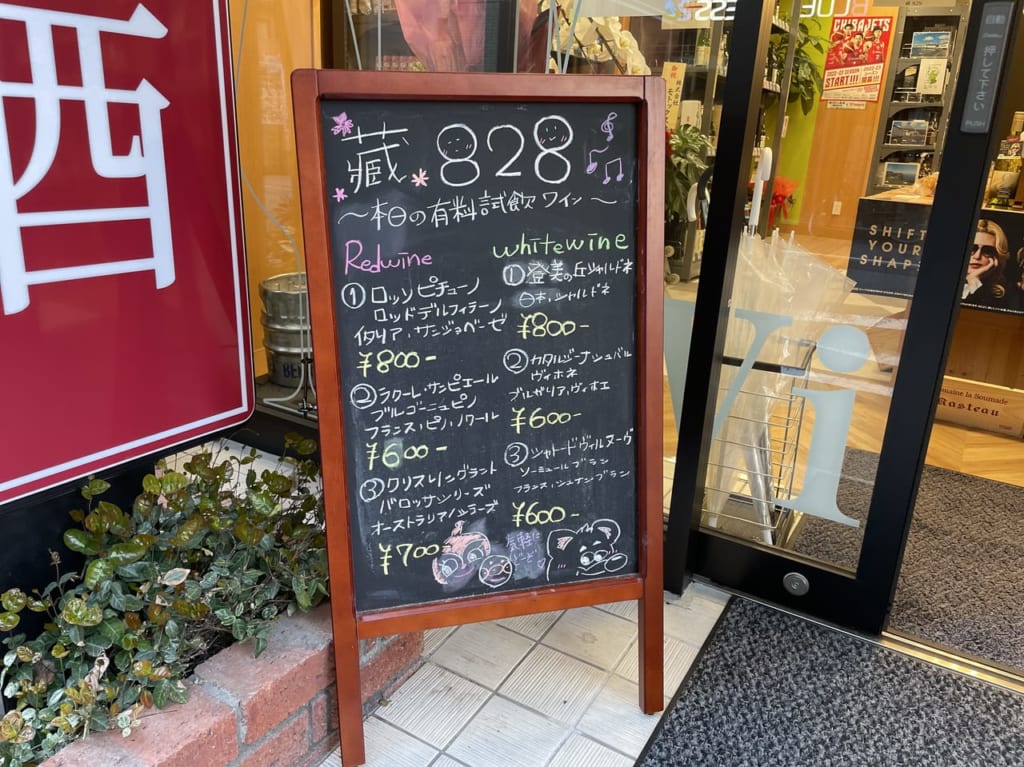 酒
藏 828
～本日の有料試飲ワイン～
Redwine
①ロッソピチューノ
ロッドデルフィテーノ
イタリア.サンジョベーゼ
¥800-
②ラクーレ.サンピエール
ブルゴーニュピノ
フランス.ピノ.ノワール
¥600-
③クリスリングラント
バロッサシリーズ
オーストラリア/シラーズ
¥700
whitewine
①登美の丘シャルドネ
日本.シャルドネ
¥800-
②カタルジーナシュバル
ヴィホネ
ブルガリア.ヴィオエ
¥600-
③シャトードヴィルヌーヴ
ソーミュールブラン
フランス.シュナンブラン
¥600-
気軽に
CHIBAJETS
START!!!
押して下さい
PUSH
SHIFT
YOUR
SHAP
Vi
Domaine la Soumade
Rasteau